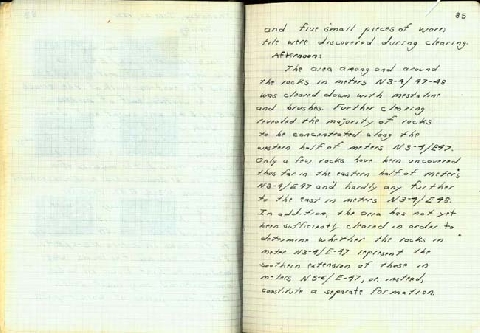 85
and five small pieces of worn
tile were discovered during clearing.
Afternoon:
The area among and around
the rocks in meters N3-4/47-48
was cleared down with
and brushes. Further clearing
revealed the majority of rocks
to be concentrated along the
western half of meters N3-4/E47.
Only a few rocks have been uncovered
thus far in the eastern half of meters
N3-4/E47 and hardly any further
to the east in meters N3-4/E48.
In addition, the area has not yet
been sufficiently cleared in order to
determine whether the rocks in
meter N3-4/E-47 represent the
southern extension of those in
meters /E-47, or, instead,
constitute a separate formation.